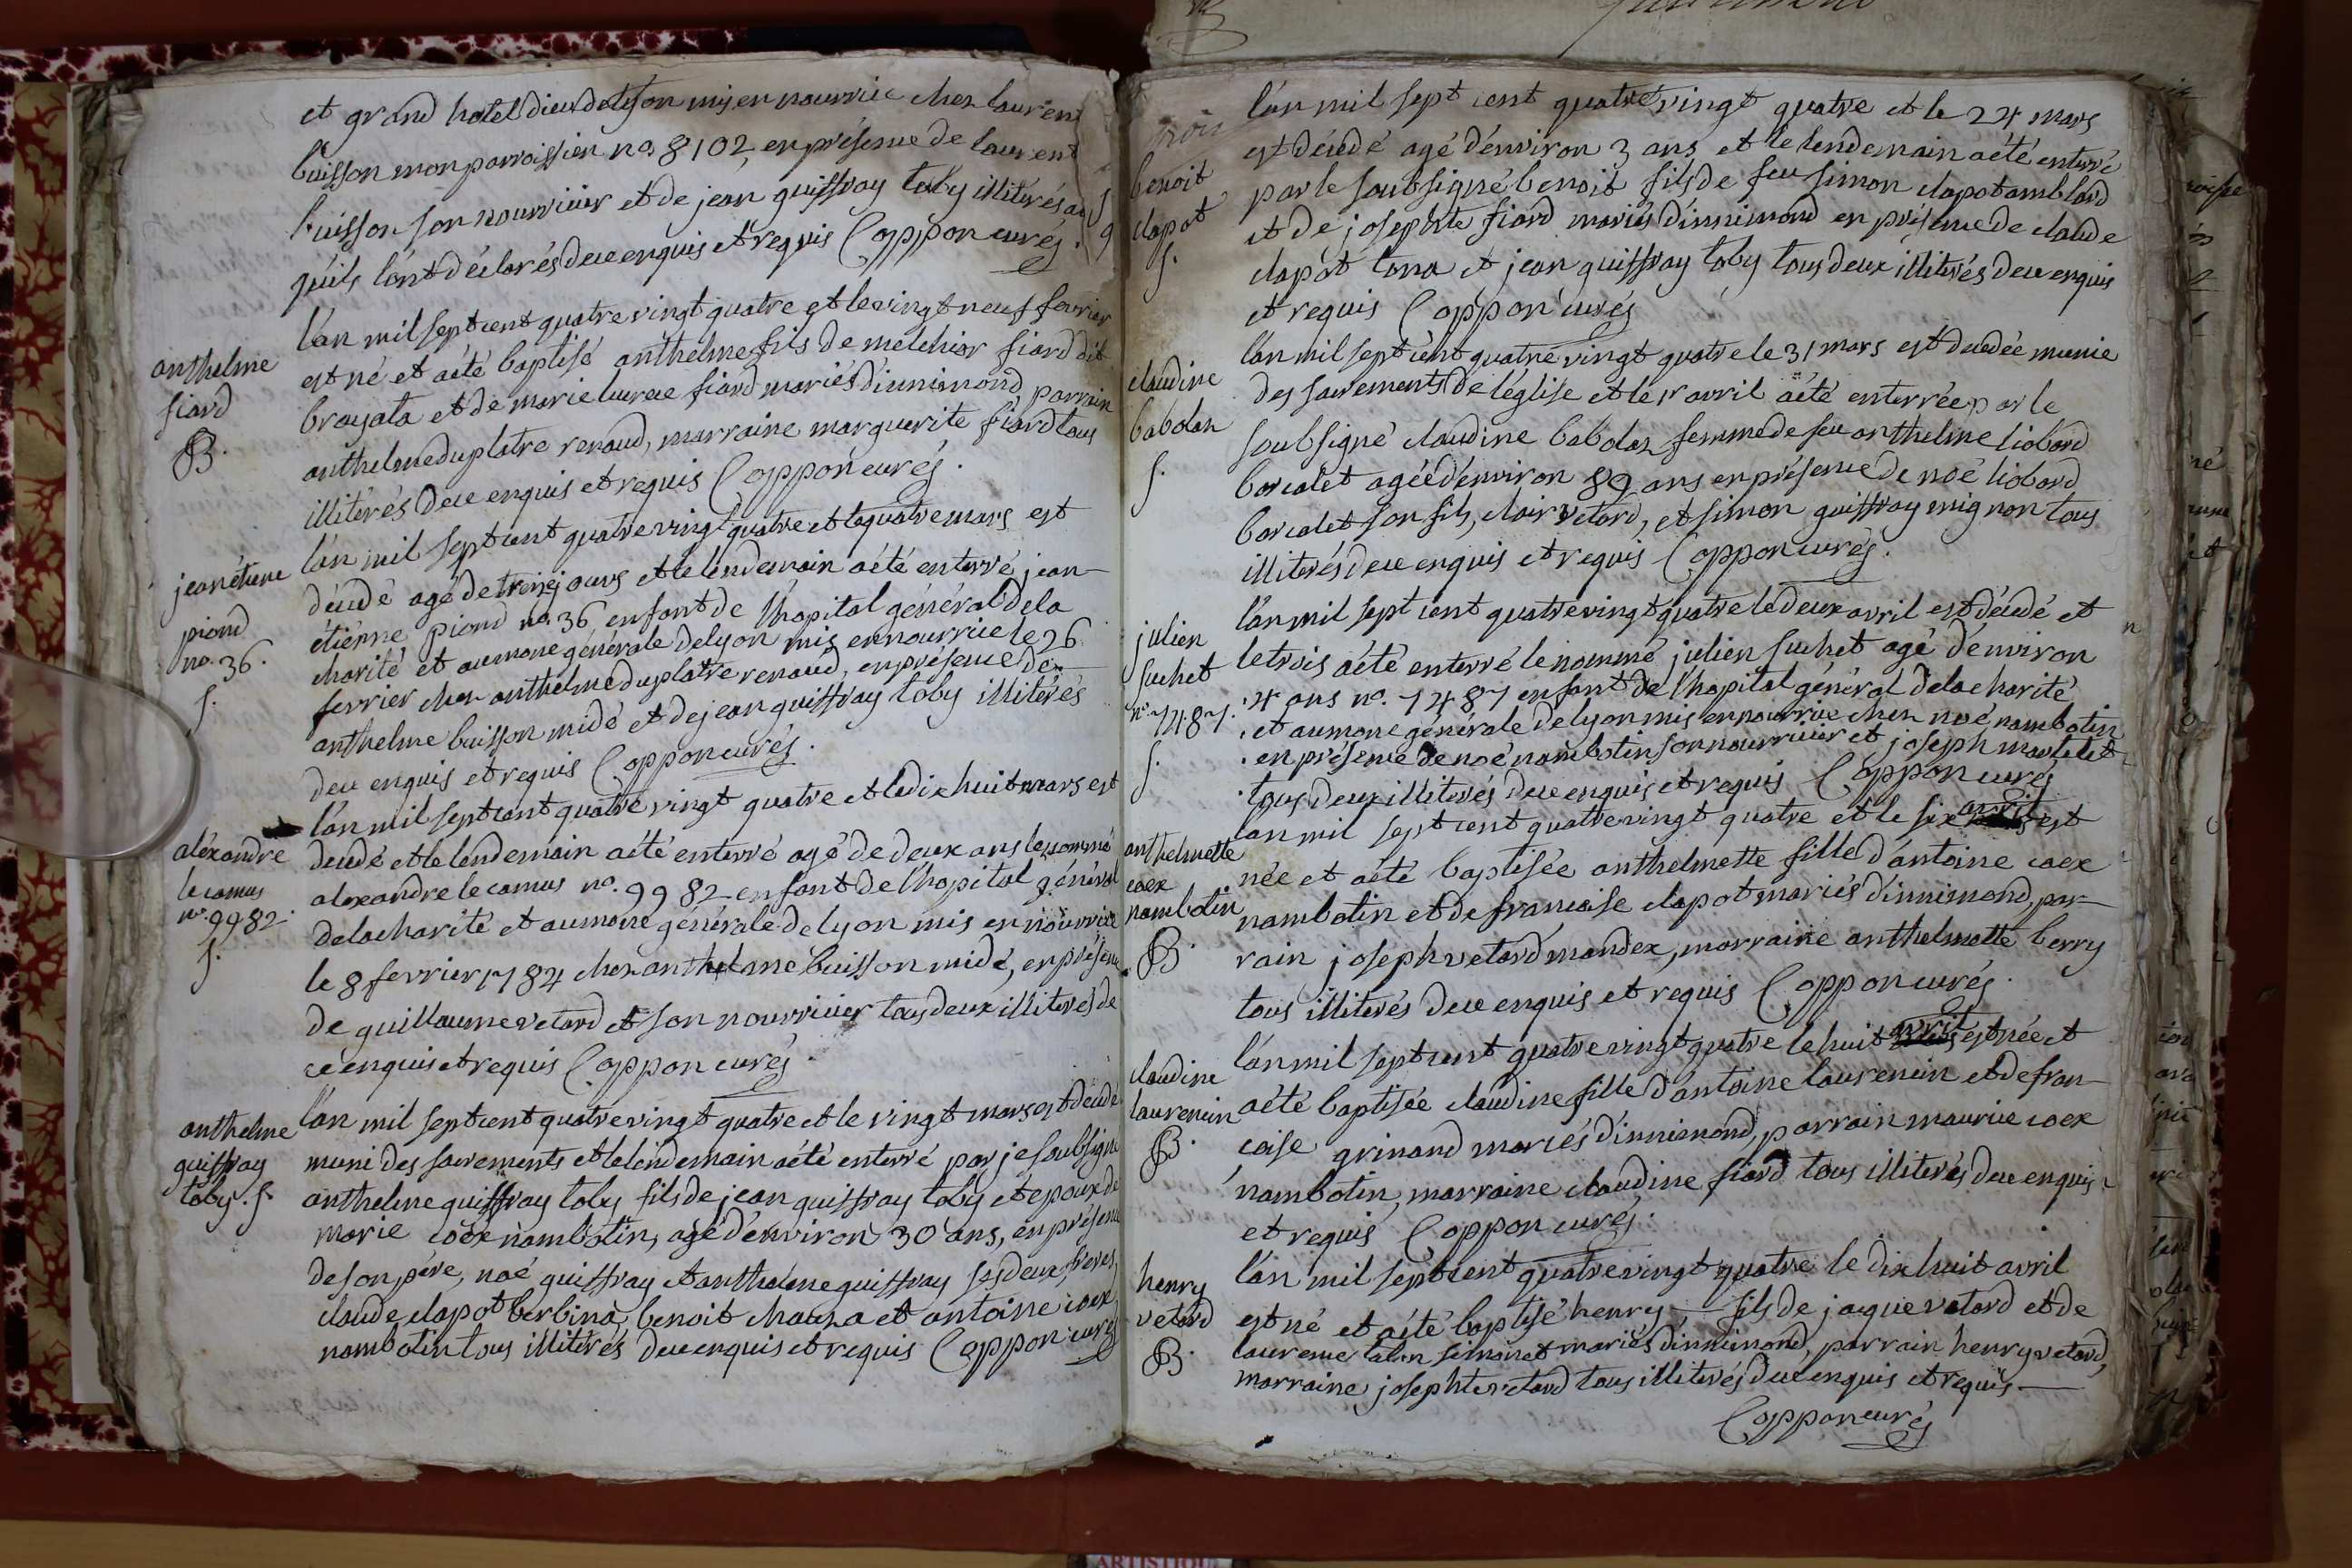 et grand hotel dieu de lyon mis en nourrice chez laurent
buisson mon parroissien no. 8102, en présence de laurent
buisson son nourricier et de jean guiffray toby illiterés
quils l'ont déclarés de ce enquis et requis Coppon curé
l'an mil sept cent quatre vingt quatre et le vingt neuf fevrier
anthelme
fiard
B.
est né et a été baptisé anthelme fils de melchior fiard dit
brayata et de marie lucrece fiard mariés d'innimond, parrain
anthelme duplatre renaud, marraine marguerite fiard tous
illitérés de ce enquis et requis Coppon curé.
jean étiene
piond
no. 36.
s.
l'an mil sept cent quatre vingt quatre et le quatre mars est
décédé agé de treize jours et le lendemain a été enterré jean
étiénne piond no. 36 enfant de l'hopital général de la
charité et aumone générale de lyon mis en nourrice le 26
fevrier chez anthelme duplatre renaud, en présence de
anthelme buisson midé et de jean guiffray toby illitérés
de ce enquis et requis Coppon curé.
l'an mil sept cent quatre vingt quatre et le dix huit mars est
aléxandre
le camus
no. 9982.
s.
décédé et le lendemain a été enterré agé de deux ans le nommé
alexandre le camus no. 9982 enfant de l'hopital général
de la charité et aumone générale de lyon mis en nourrice
le 8 fevrier 1784 chez anthelme buisson midé, en présence
de guillaume vetard et son nourricier tous deux illiterés de
ce enquis et requis Coppon curé.
anthelme
guiffray
toby. s.
l'an mil sept cent quatre vingt quatre et le vingt mars est décédé
muni des sacrements et le lendemain a été enterré par je soubsigné
anthelme guiffray toby fils de jean guiffray toby et epoux de
marie coex nambotin, agé d'environ 30 ans, en présence
de son père, noé guiffray et anthelme guiffray ses deux freres,
claude clapot berbina, benoit et antoine coex
nambotin tous illitérés de ce enquis et requis Coppon curé
benoit
clapot
s.
l'an mil sept cent quatre vingt quatre et le 24 mars
est décédé agé d'environ 3 ans et le lendemain a été enterré
par le soubsigné benoit fils de feu simon clapot amblard
et de josephte fiard mariés d'innimond en présence de claude
clapot tona et jean guiffray toby tous deux illiterés de ce enquis
et requis Coppon curé
claudine
babolaz
s.
l'an mil sept cent quatre vingt quatre le 31 mars est décédée munie
des sacrements de l'église et le 1r avril a été enterrée par le
soubsigné claudine babolaz femme de feu anthelme liobard
borcalet agée d'environ 89 ans en présence de noé liobard
borcalet son fils, clair vetard, et simon guiffray mignon tous
illiterés de ce enquis et requis Coppon curé.
julien
suchet
no. 7487.
s.
l'an mil sept cent quatre vingt quatre le deux avril est décédé et
le trois a été enterré le nommé julien suchet agé d'environ
4 ans no. 7487 enfant de l'hopital général de la charité
et aumone générale de lyon mis en nourrice chez noé nambotin
en présence de noé nambotin son nourricier et joseph martelet
tous deux illiterés de ce enquis et requis Coppon curé
anthelmette
coex
nambotin
B.
l'an mil sept cent quatre vingt quatre et le six avril est
née et a été baptisée anthelmette fille d'antoine coex
nambotin et de francoise clapot mariés d'innimond, par-
rain joseph vetard mandex, marraine anthelmette berry
tous illiterés de ce enquis et requis Coppon curé.
claudine
laurencin
B.
l'an mil sept cent quatre vingt quatre le huit avril est née et
a été baptisée claudine fille d'antoine laurencin et de fran-
coise grinand mariés d'innimond, parrain maurice coex
nambotin, marraine claudine fiard tous illiterés de ce enquis
et requis Coppon curé.
henry
vetard
B.
l'an mil sept cent quatre vingt quatre le dix huit avril
est né et a été baptisé henry fils de jacque vetard et de
laurence talon simonet mariés d'innimond, parrain henry vetard,
marraine josephte vetard tous illiterés de ce enquis et requis
Coppon curé
ARTISTIQUE